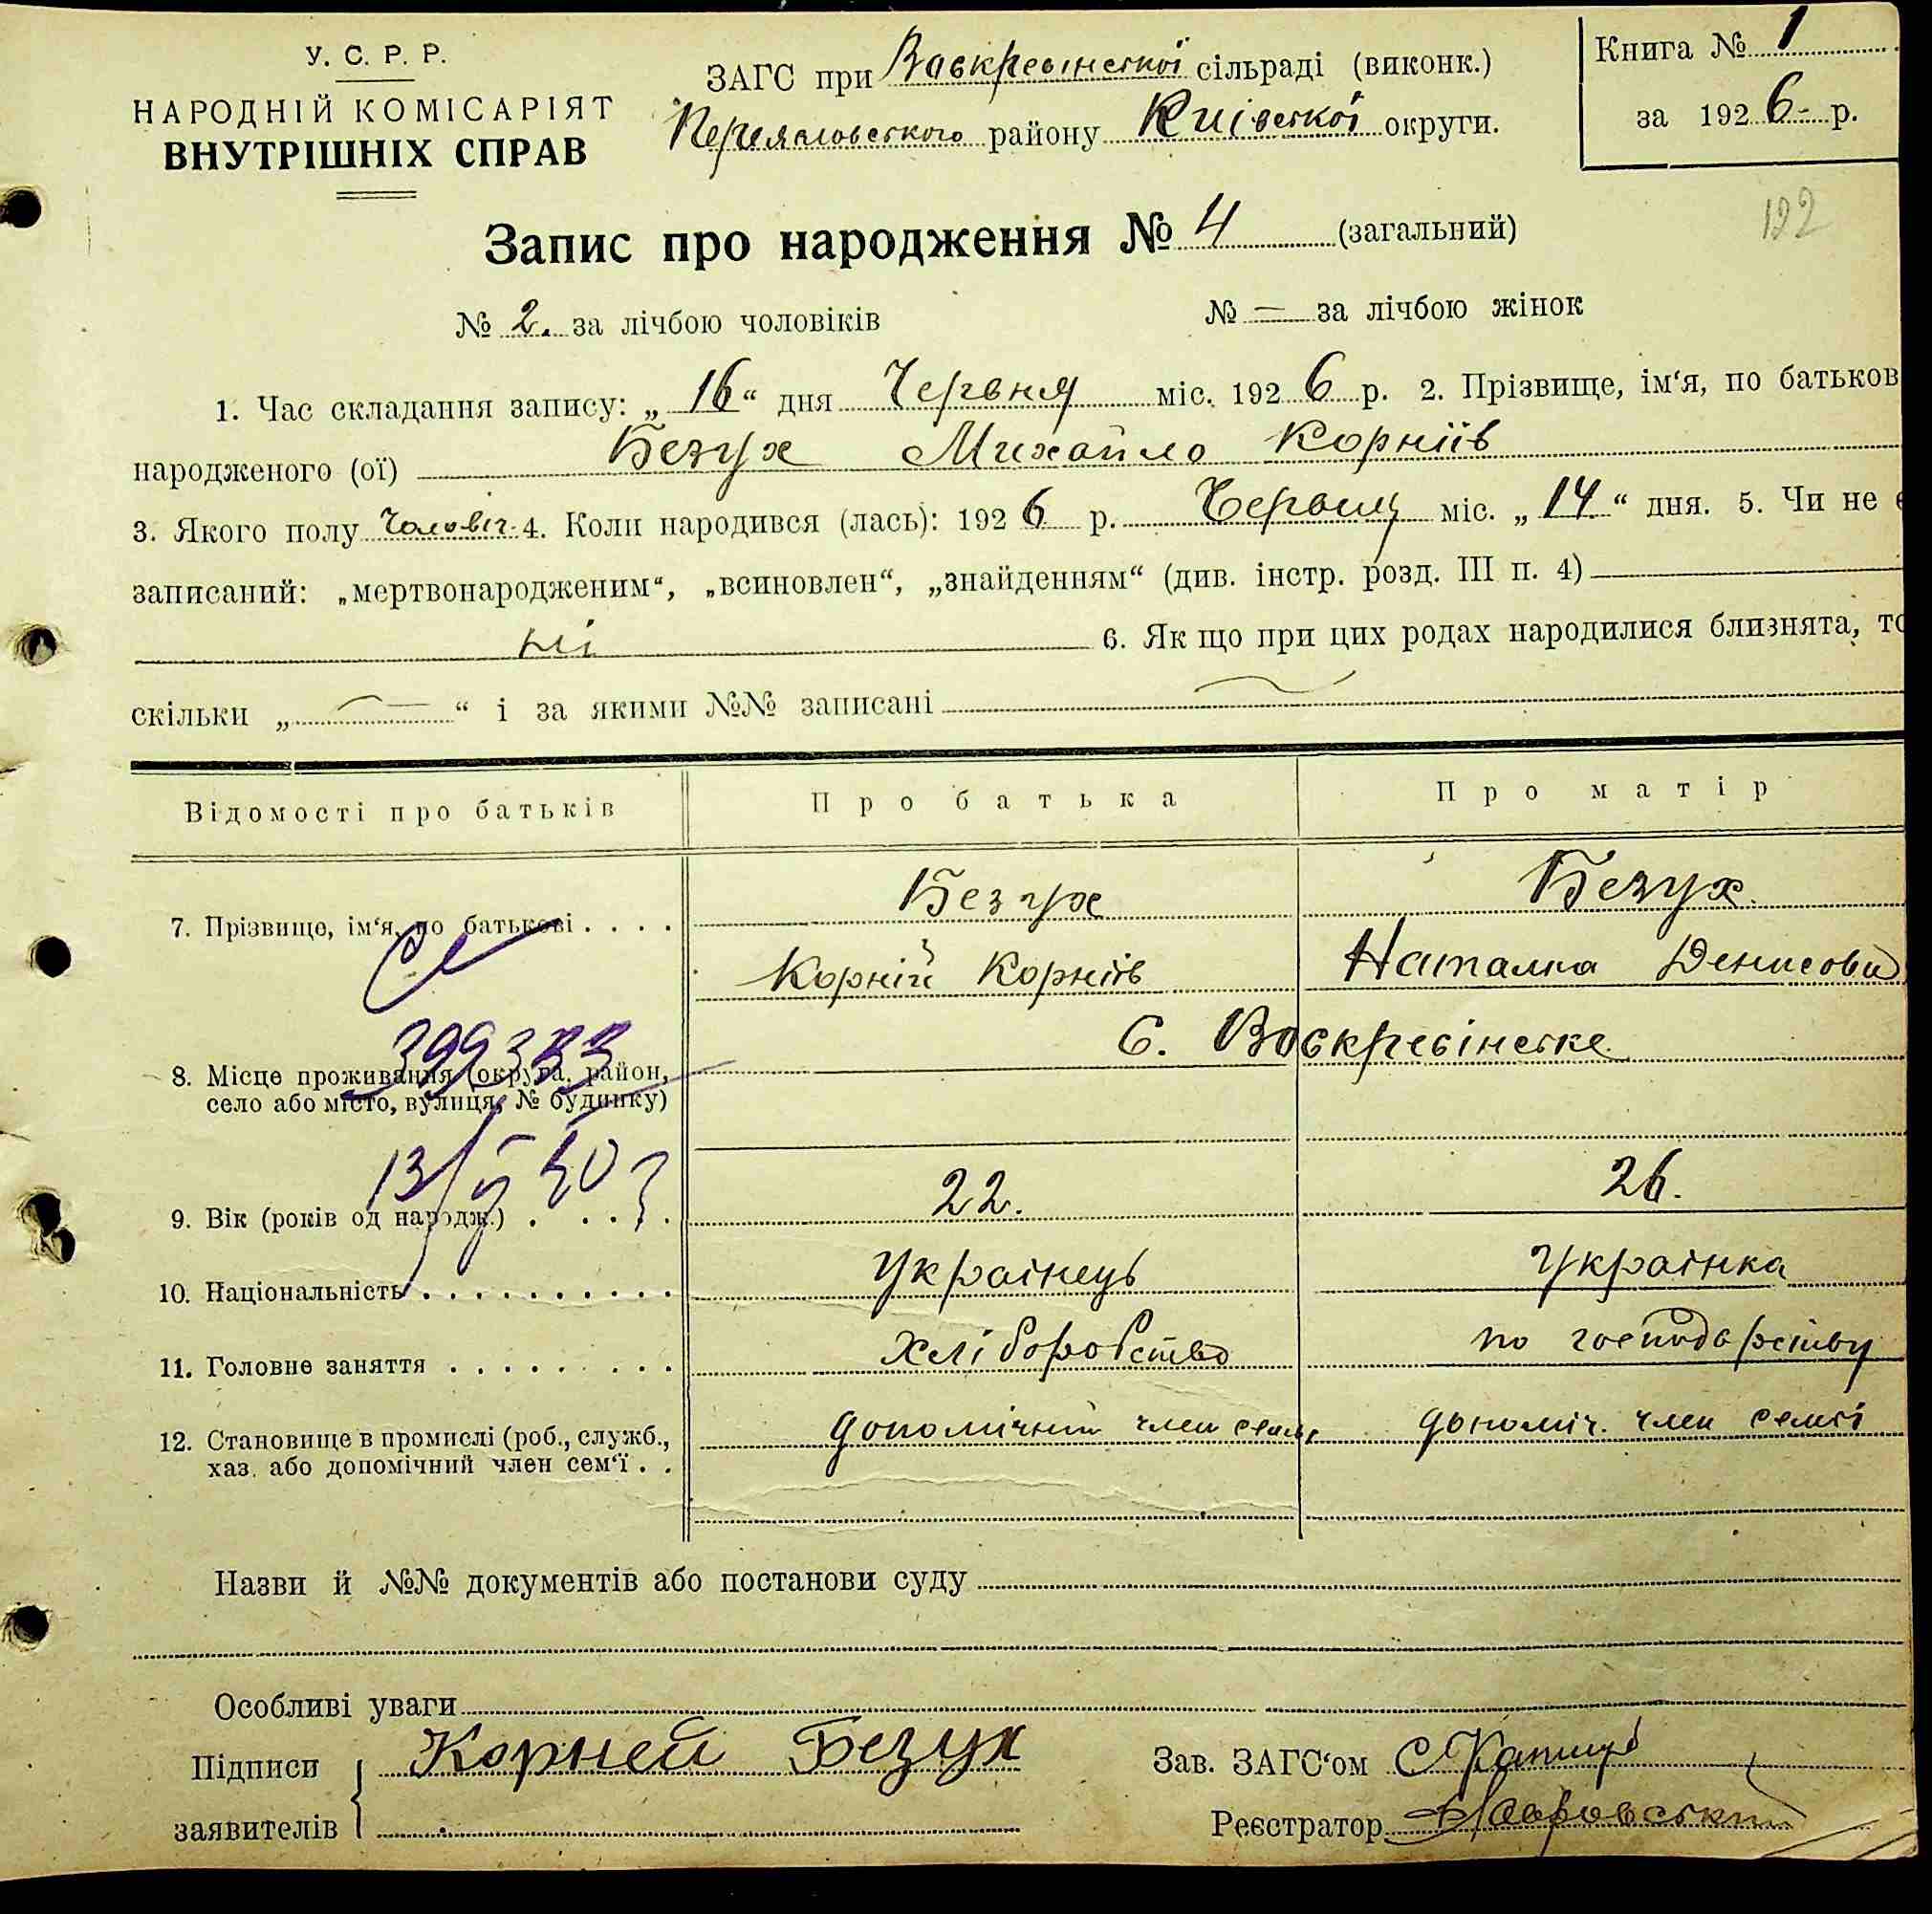 У. С. Р. Р.
НАРОДНІЙ КОМІСАРІЯТ
ВНУТРІШНІХ СПРАВ
ЗАГС при Воскресінської сільраді (виконк.)
Переяславського району Київської округи.
Книга № 1
за 1926 р.
192
Запис про народження № 4 (загальний)
№ 2. за лічбою чоловіків № — за лічбою жінок
1. Час складання запису: „16“ дня Червня міс. 1926 р. 2. Прізвище, ім‘я, по батьков
народженого (ої) Безух Михайло Корніїв
3. Якого полу чоловіч. 4. Коли народився (лась): 1926 р. Червня міс. „14“ дня. 5. Чи не є
записаний: „мертвонародженим“, „всиновлен“, „знайденням“ (див. інстр. розд. III п. 4)
ні 6. Як що при цих родах народилися близнята, то
скільки „ — “ і за якими №№ записані —
Відомості про батьків Про батька Про матір
7. Прізвище, ім‘я, по батькові . . . . Безух Безух
Корній Корніїв Наталка Денисовн
8. Місце проживання (округа, район,
село або місто, вулиця, № будинку) С. Воскресінське
399333
13/V 40
9. Вік (років од народж.) . . . . . 22. 26.
10. Національність . . . . . . . . . . Українець Українка
11. Головне заняття . . . . . . . . . Хліборобство по господарству
12. Становище в промислі (роб., служб.,
хаз. або допомічний член сем‘ї . . допомічний член семї допоміч. член семї
Назви й №№ документів або постанови суду
Особливі уваги
Підписи
заявителів
Корней Безух
Зав. ЗАГС‘ом
Реєстратор